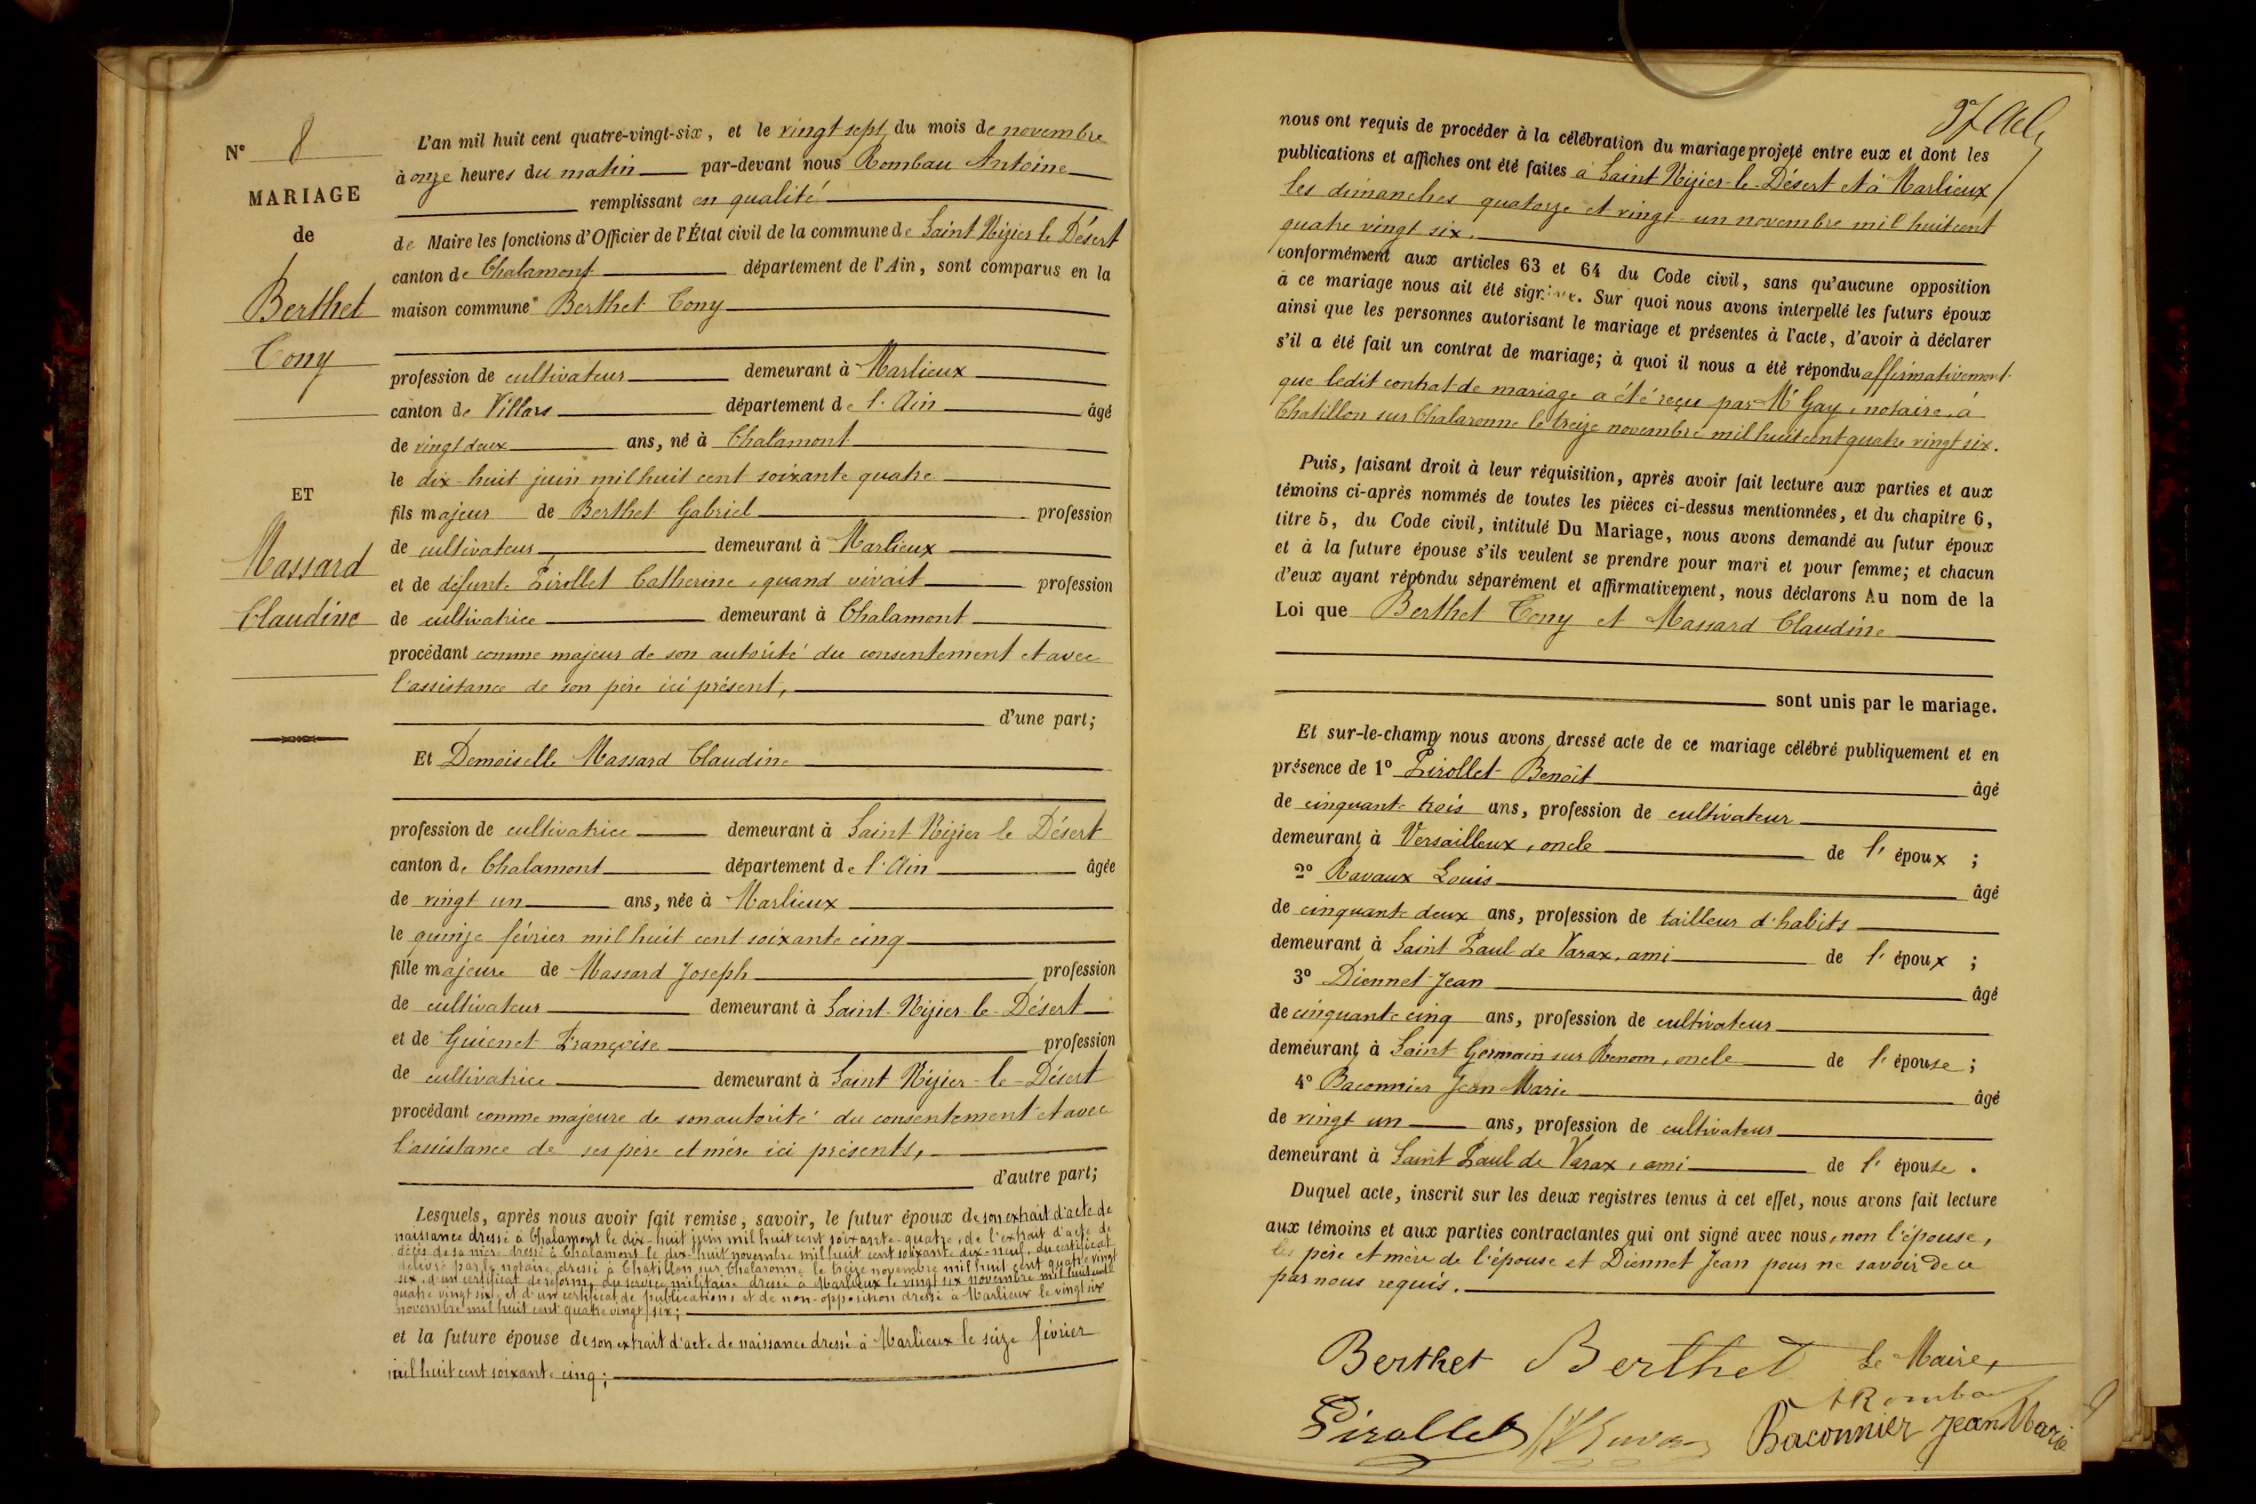 N° 8
MARIAGE
de
Berthet
Tony
ET
Massard
Claudine
L'an mil huit cent quatre-vingt-six, et le vingt sept du mois de novembre
à onze heures du matin par-devant nous Rombau Antoine
remplissant en qualité
de Maire les fonctions d'Officier de l'État civil de la commune de Saint Nizier le Désert
canton de Chalamont département de l'Ain, sont comparus en la
maison commune Berthet Tony
profession de cultivateur demeurant à Marlieux
canton de Villars département de l'Ain âgé
de vingt deux ans, né à Chalamont
le dix-huit juin mil huit cent soixante quatre
fils majeur de Berthet Gabriel profession
de cultivateur demeurant à Marlieux
et de défunte Pirollet Catherine, quand vivait profession
de cultivatrice demeurant à Chalamont
procédant comme majeur de son autorité du consentement et avec
l'assistance de son père ici présent,
d'une part;
Et Demoiselle Massard Claudine
profession de cultivatrice demeurant à Saint Nizier le Désert
canton de Chalamont département de l'Ain âgée
de vingt un ans, née à Marlieux
le quinze février mil huit cent soixante cinq
fille majeure de Massard Joseph profession
de cultivateur demeurant à Saint-Nizier-le-Désert
et de Guienet Françoise profession
de cultivatrice demeurant à Saint Nizier-le-Désert
procédant comme majeure de son autorité du consentement et avec
l'assistance de ses père et mère ici présents,
d'autre part;
Lesquels, après nous avoir fait remise, savoir, le futur époux de son extrait d'acte de
naissance dressé à Chalamont le dix-huit juin mil huit cent soixante-quatre, de l'extrait d'acte de
décès de sa mère dressé à Chalamont le dix-huit novembre mil huit cent soixante dix-neuf, du certificat
délivré par le notaire, dressé à Chatillon sur Chalaronne le treize novembre mil huit cent quatre vingt
six, d'un certificat de réforme du service militaire dressé à Marlieux le vingt six novembre mil huit cent
quatre vingt six, et d'un certificat de publications et de non-opposition dressé à Marlieux le vingt six
novembre mil huit cent quatre vingt six;
et la future épouse de son extrait d'acte de naissance dressé à Marlieux le seize février
mil huit cent soixante cinq;
nous ont requis de procéder à la célébration du mariage projeté entre eux et dont les
publications et affiches ont été faites à Saint Nizier-le-Désert et à Marlieux
les dimanches quatorze et vingt-un novembre mil huit cent
quatre vingt six.
conformément aux articles 63 et 64 du Code civil, sans qu'aucune opposition
à ce mariage nous ait été signifiée. Sur quoi nous avons interpellé les futurs époux
ainsi que les personnes autorisant le mariage et présentes à l'acte, d'avoir à déclarer
s'il a été fait un contrat de mariage; à quoi il nous a été répondu affirmativement
que ledit contrat de mariage a été reçu par Me Gay, notaire à
Chatillon sur Chalaronne le treize novembre mil huit cent quatre vingt six.
Puis, faisant droit à leur réquisition, après avoir fait lecture aux parties et aux
témoins ci-après nommés de toutes les pièces ci-dessus mentionnées, et du chapitre 6,
titre 5, du Code civil, intitulé Du Mariage, nous avons demandé au futur époux
et à la future épouse s'ils veulent se prendre pour mari et pour femme; et chacun
d'eux ayant répondu séparément et affirmativement, nous déclarons Au nom de la
Loi que Berthet Tony et Massard Claudine
sont unis par le mariage.
Et sur-le-champ nous avons dressé acte de ce mariage célébré publiquement et en
présence de 1° Pirollet Benoît âgé
de cinquante trois ans, profession de cultivateur
demeurant à Versailleux, oncle de l'époux ;
2° Ravaux Louis âgé
de cinquante deux ans, profession de tailleur d'habits
demeurant à Saint Paul de Varax, ami de l'époux ;
3° Diennet Jean âgé
de cinquante cinq ans, profession de cultivateur
demeurant à Saint Germain sur Renom, oncle de l'épouse ;
4° Baconnier Jean Marie âgé
de vingt un ans, profession de cultivateur
demeurant à Saint Paul de Varax, ami de l'épouse .
Duquel acte, inscrit sur les deux registres tenus à cet effet, nous avons fait lecture
aux témoins et aux parties contractantes qui ont signé avec nous, non l'épouse,
les père et mère de l'épouse et Diennet Jean pour ne savoir de ce
par nous requis.
Berthet Berthet Le Maire,
A Rombau
Pirollet Baconnier Jean Marie